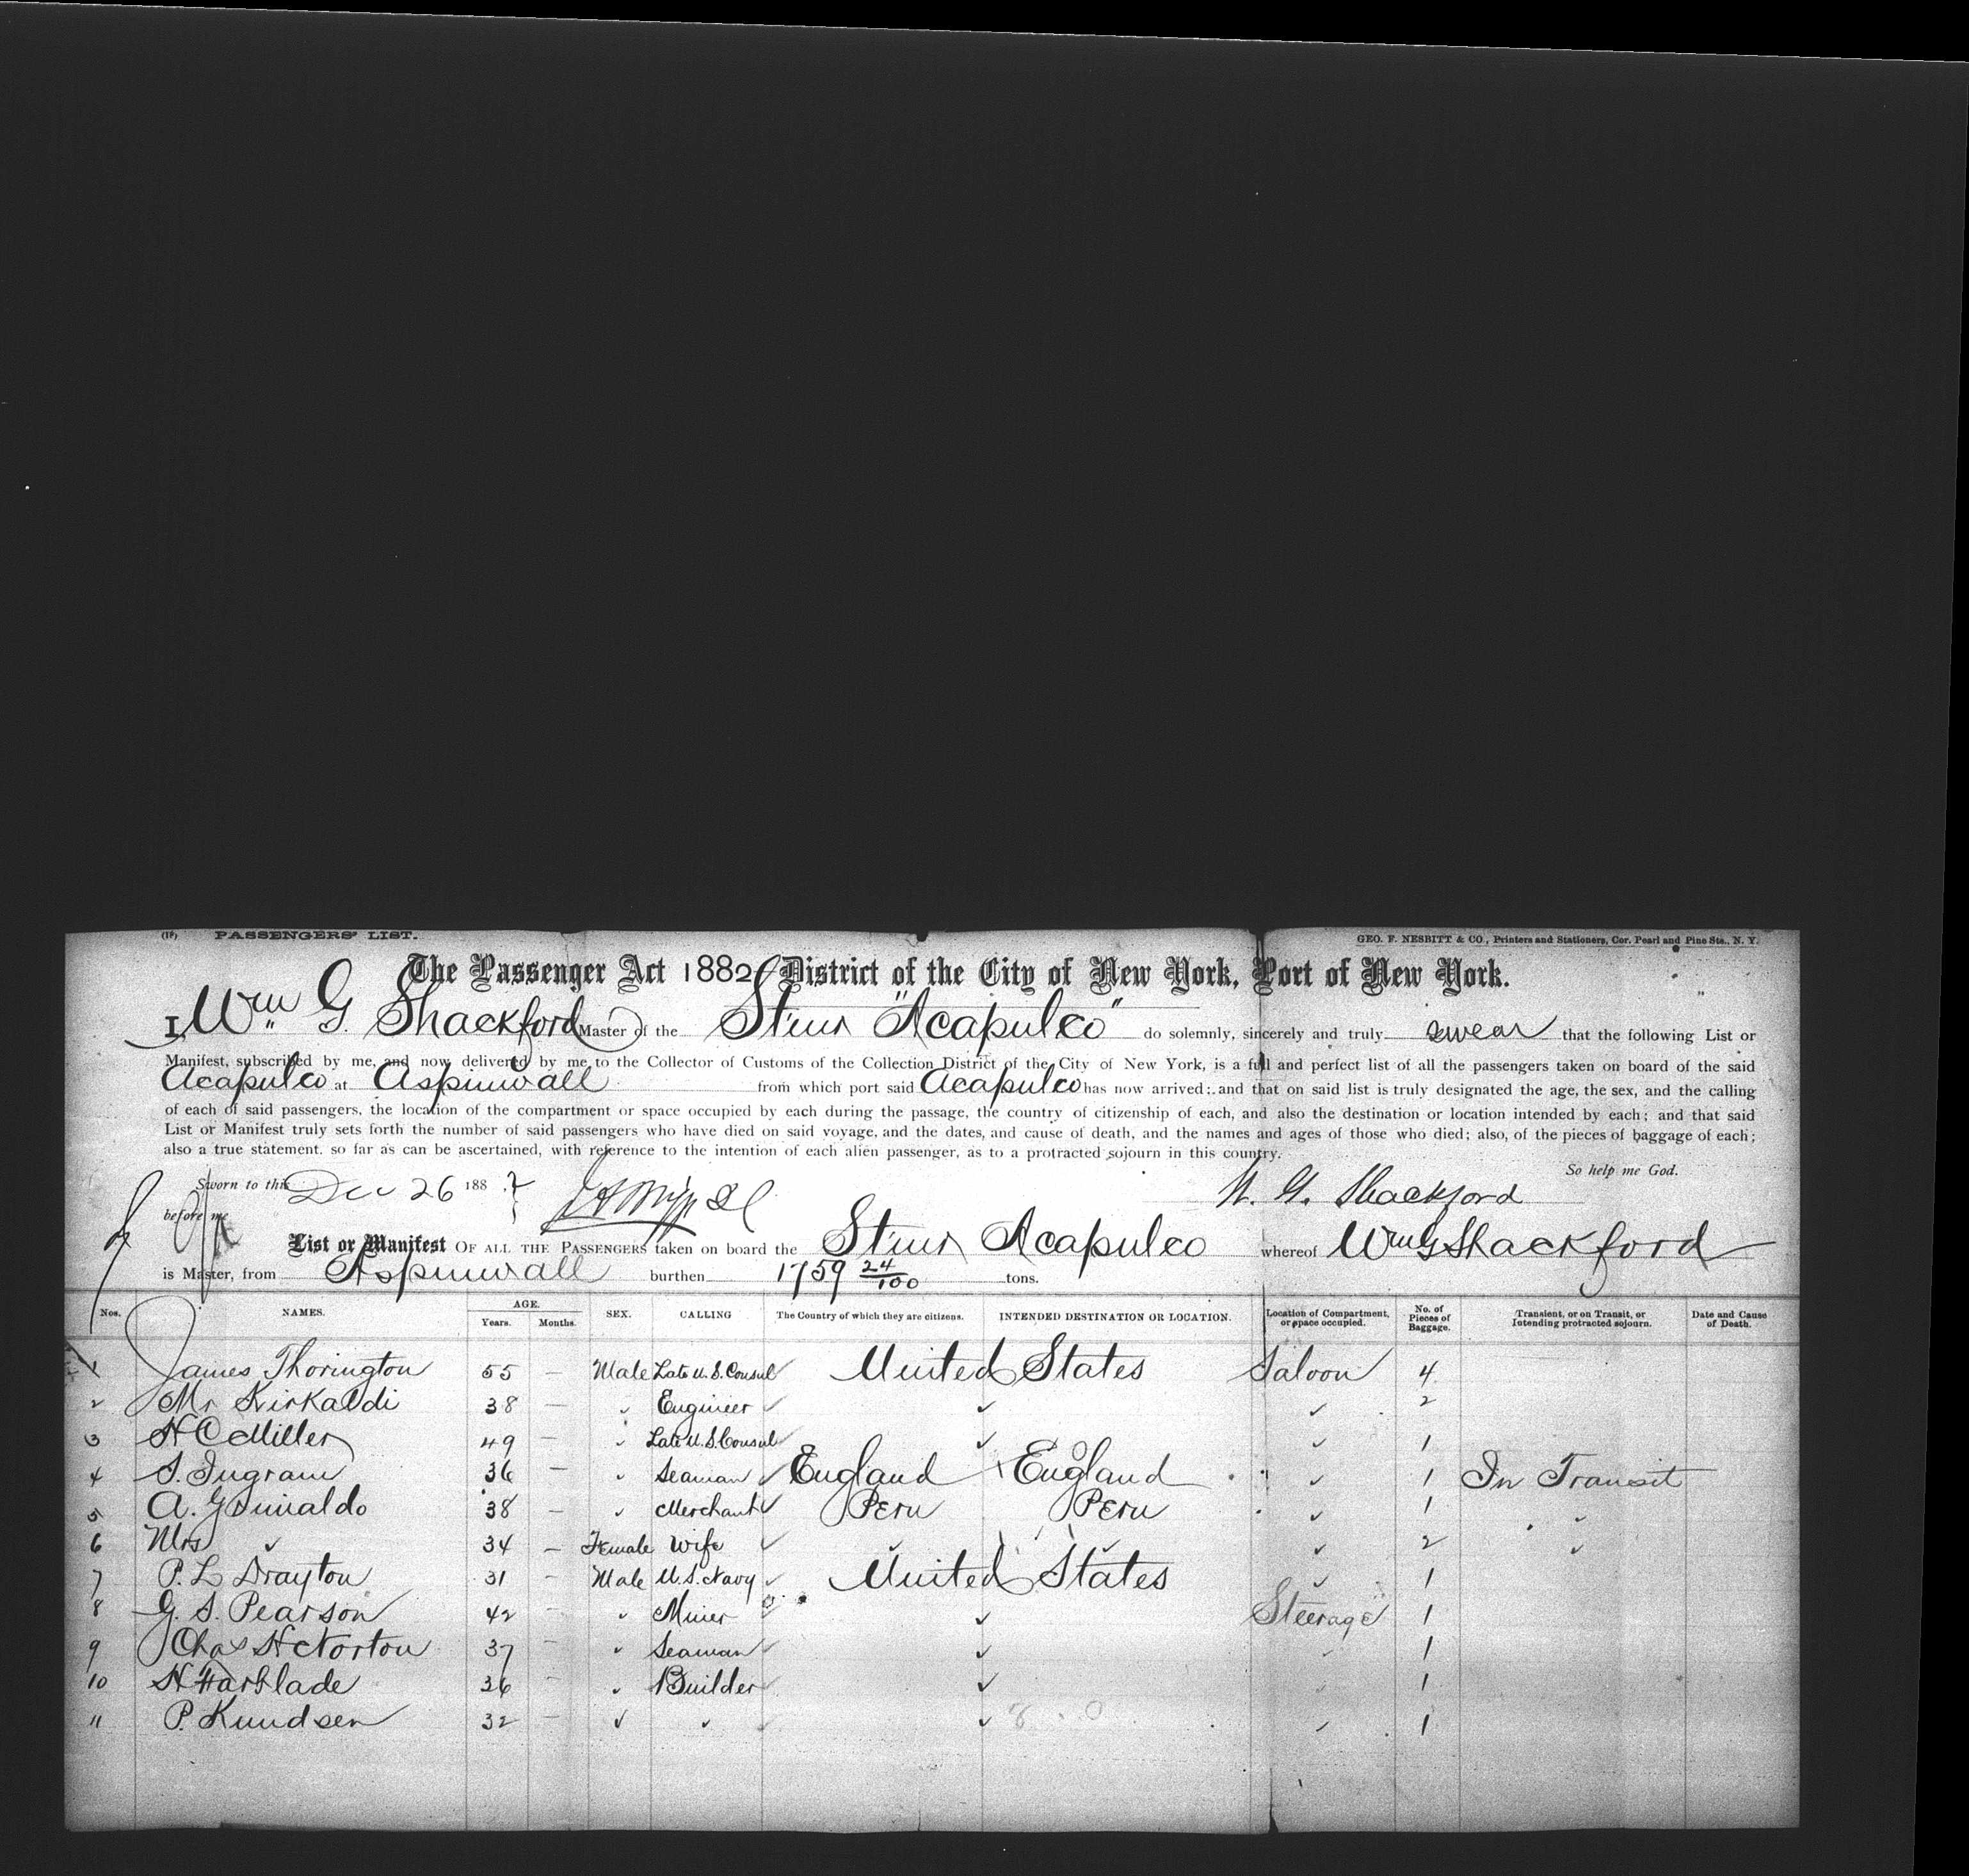 (18) PASSENGERS' LIST. GEO. F. NESBITT & CO., Printers and Stationers, Cor. Pearl and Pine Sts., N. Y.
The Passenger Act 1882 District of the City of New York, Port of New York.
I, Wm G. Shackford Master of the Stmr "Acapulco" do solemnly, sincerely and truly swear that the following List or
Manifest, subscribed by me, and now delivered by me to the Collector of Customs of the Collection District of the City of New York, is a full and perfect list of all the passengers taken on board of the said
Acapulco at Aspinwall from which port said Acapulco has now arrived: and that on said list is truly designated the age, the sex, and the calling
of each of said passengers, the location of the compartment or space occupied by each during the passage, the country of citizenship of each, and also the destination or location intended by each; and that said
List or Manifest truly sets forth the number of said passengers who have died on said voyage, and the dates, and cause of death, and the names and ages of those who died; also, of the pieces of baggage of each;
also a true statement, so far as can be ascertained, with reference to the intention of each alien passenger, as to a protracted sojourn in this country.
So help me God.
Sworn to this Dec 26 188 W. G. Shackford
before me
List or Manifest OF ALL THE PASSENGERS taken on board the Stmr Acapulco whereof Wm G Shackford
is Master, from Aspinwall burthen 1759 24/100 tons.
Nos. NAMES. AGE. Years. Months. SEX. CALLING The Country of which they are citizens. INTENDED DESTINATION OR LOCATION. Location of Compartment, or space occupied. No. of Pieces of Baggage. Transient, or on Transit, or Intending protracted sojourn. Date and Cause of Death.
1 James Thorington 55 — Male Late U.S. Consul ✓ United States Saloon 4
2 Mr Kirkaldi 38 — ✓ Engineer ✓ ✓ ✓ 2
3 H C Miller 49 — ✓ Late U.S. Consul ✓ ✓ ✓ 1
4 S. Ingram 36 — ✓ Seaman ✓ England England ✓ 1 In Transit
5 A. Grimaldo 38 — ✓ Merchant ✓ Peru Peru ✓ 1 ✓
6 Mrs ✓ 34 — Female Wife ✓ ✓ ✓ ✓ 2 ✓
7 P. L Drayton 31 — Male U.S. Navy ✓ United States ✓ 1
8 G. S. Pearson 42 — ✓ Miner ✓ ✓ Steerage 1
9 Chas H Norton 37 — ✓ Seaman ✓ ✓ ✓ 1
10 H Harblade 36 — ✓ Builder ✓ ✓ ✓ 1
11 P. Knudsen 32 — ✓ ✓ ✓ ✓ ✓ 1